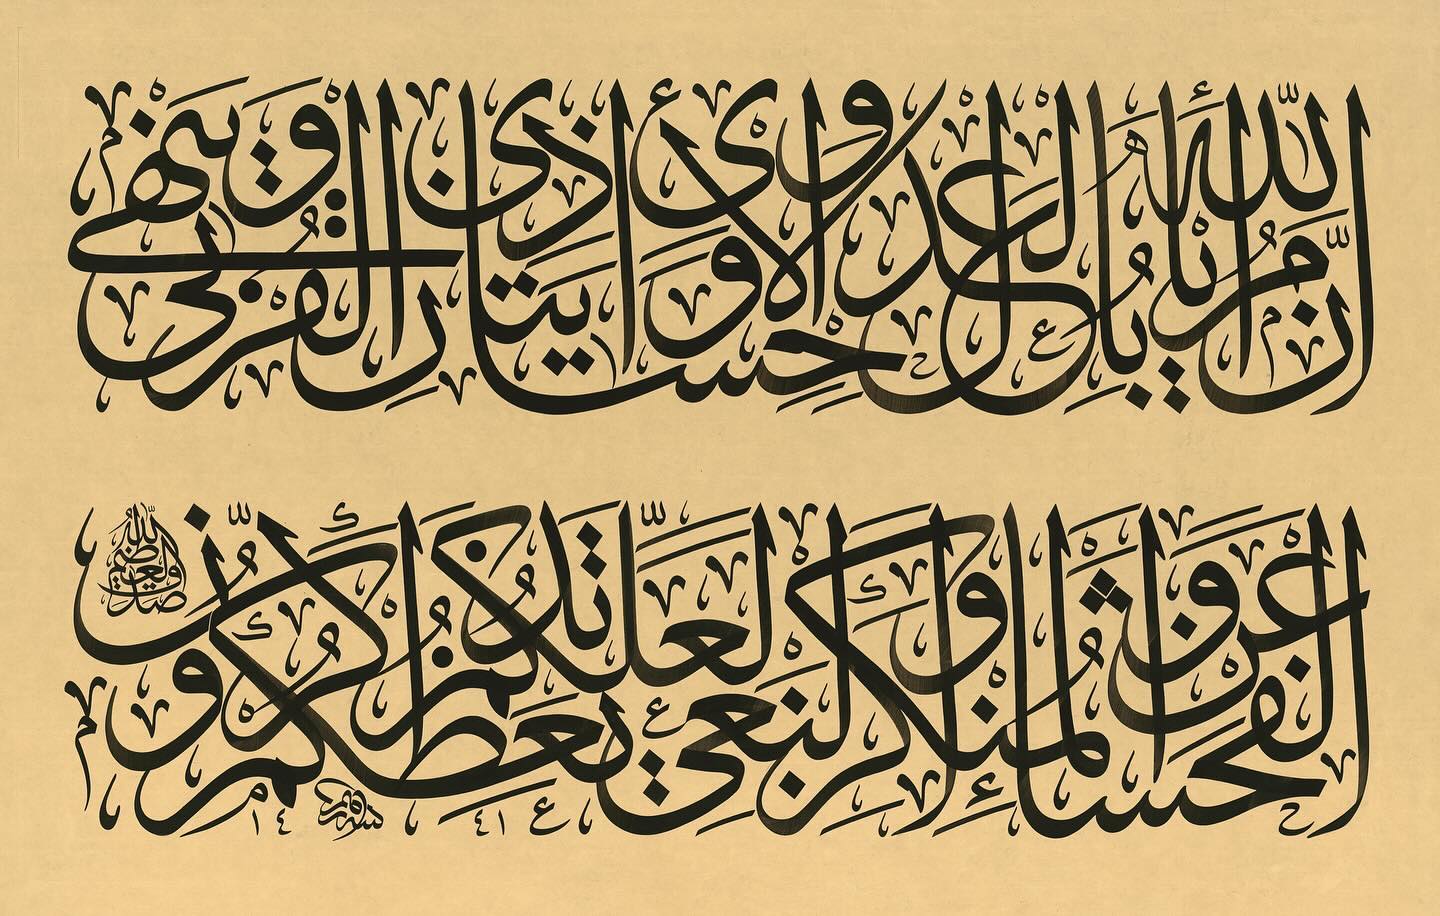 ان الله يأمر بالعدل والاحسان وايتائ ذي القربى وينهى
عن الفحشاء والمنكر والبغي يعظكم لعلكم تذكرون
صدق الله العظيم